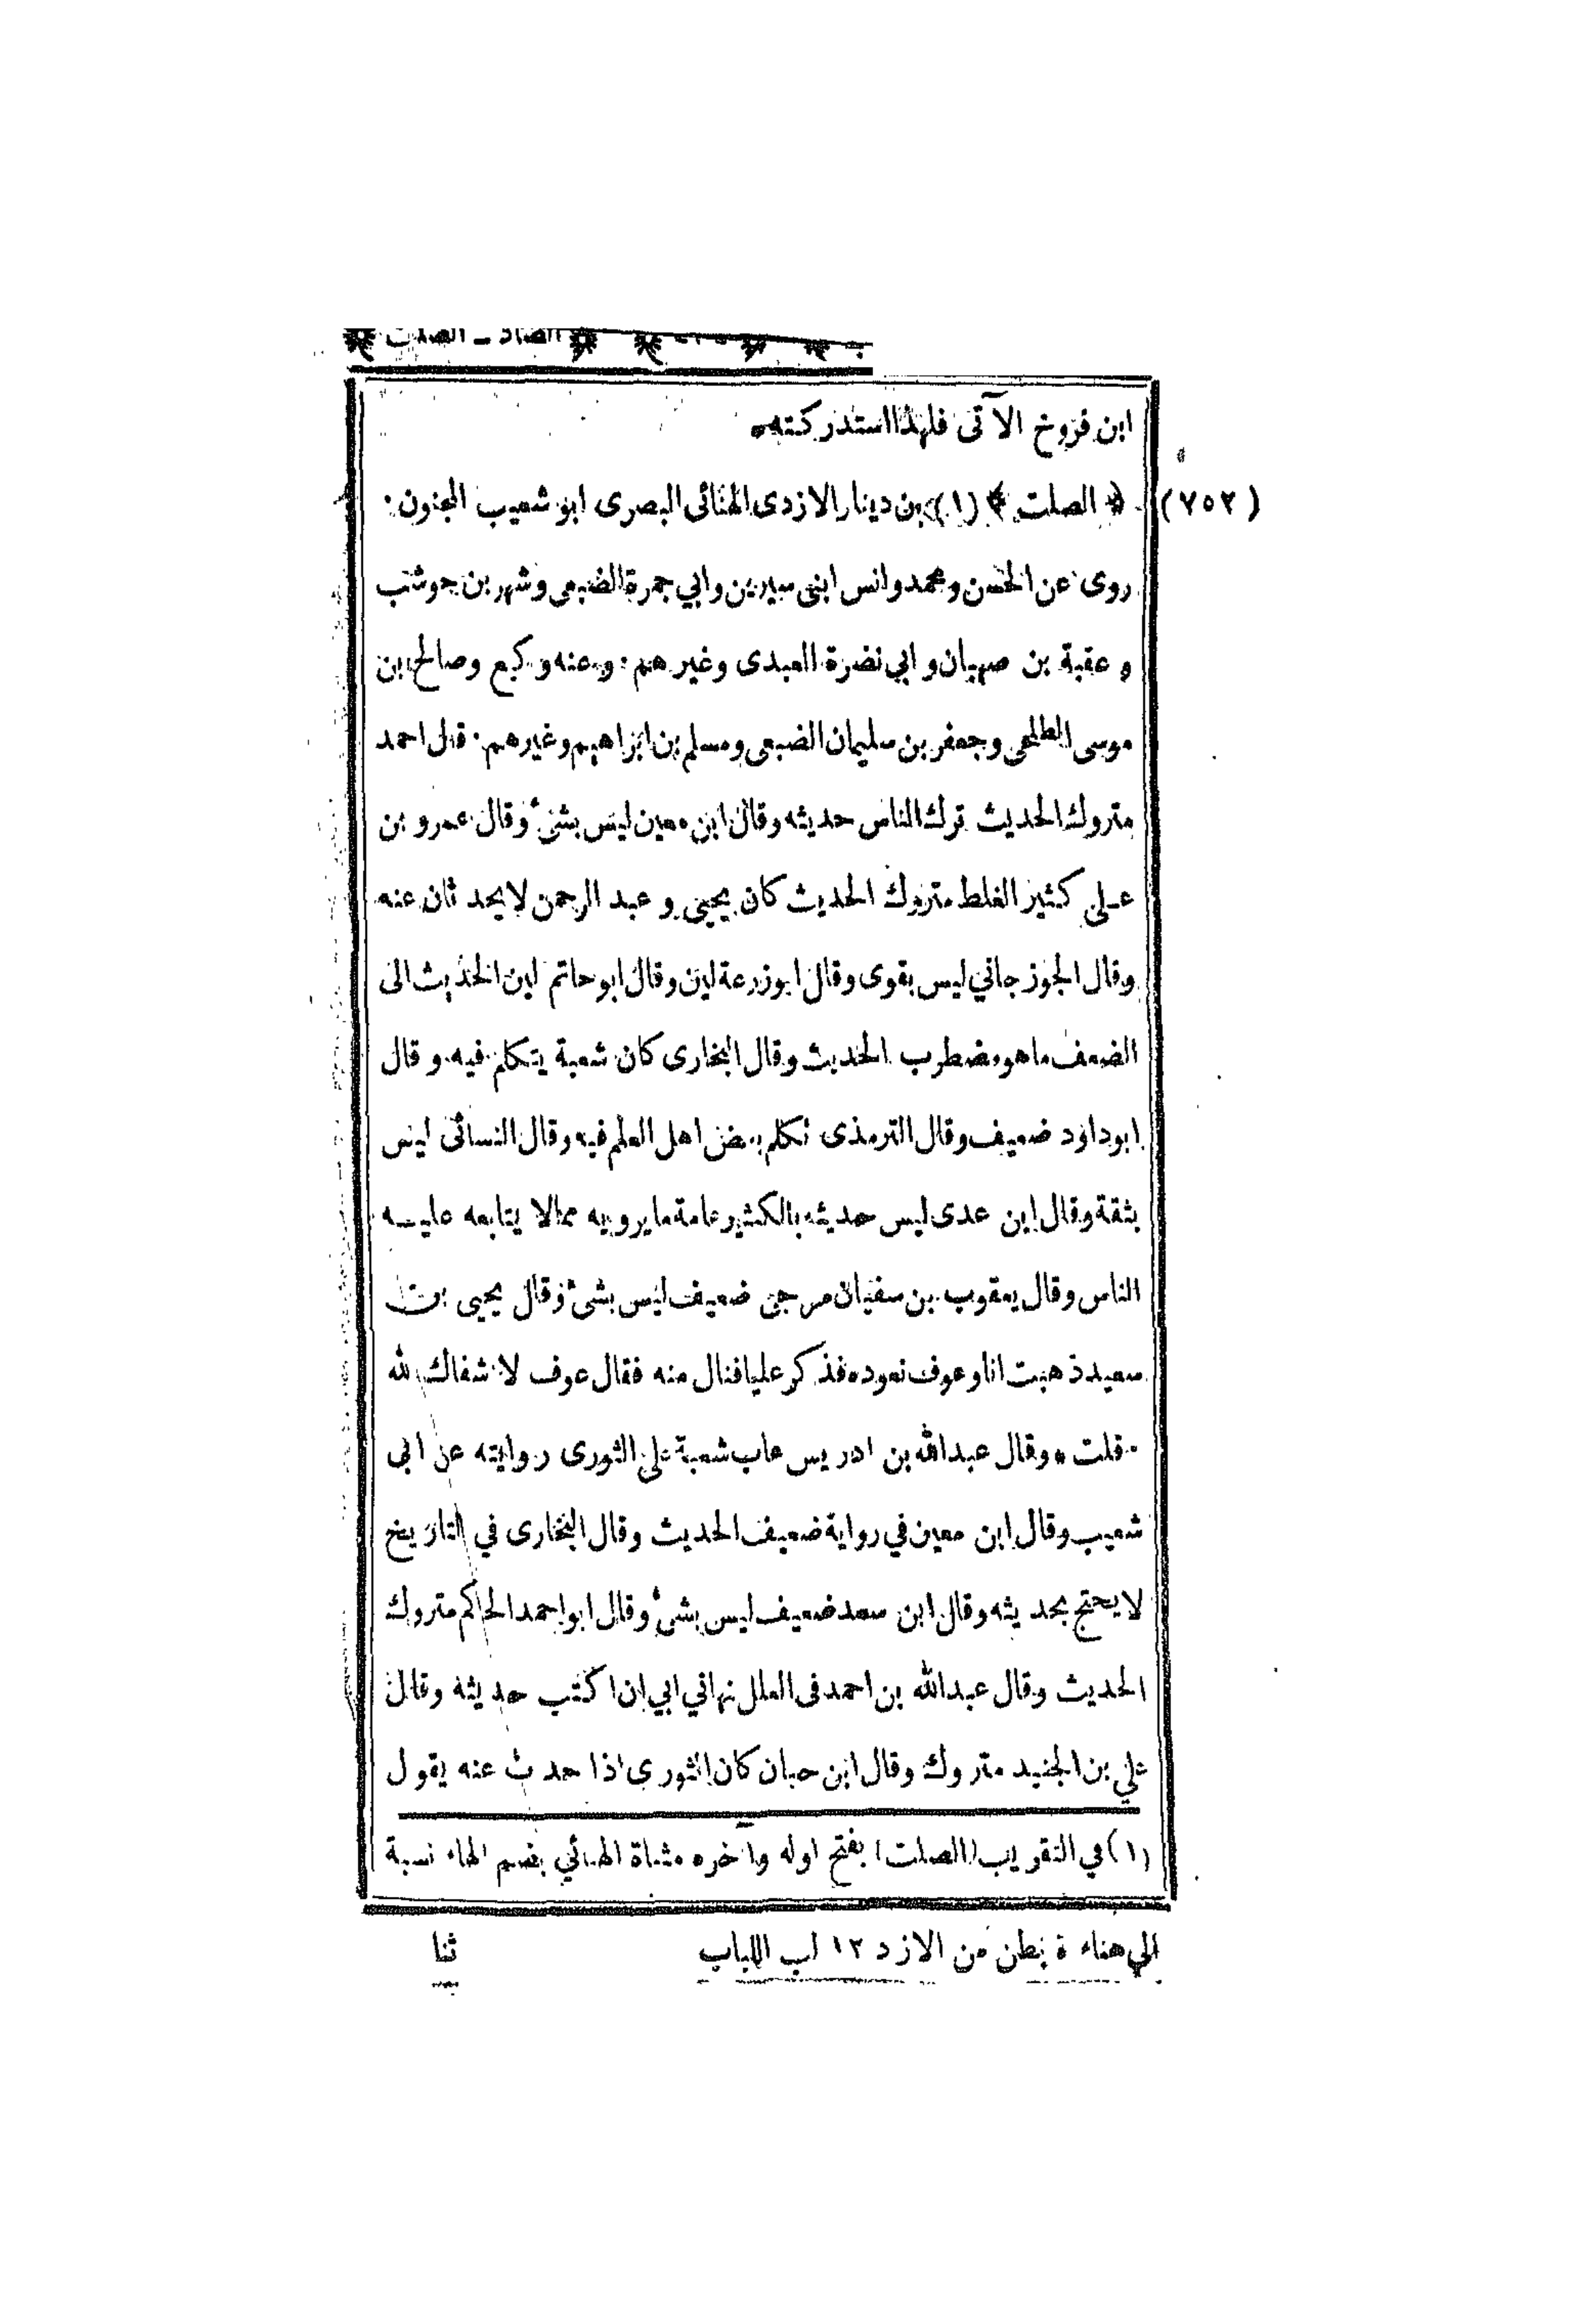 الصاد - الصلت
ابن فروخ الآتى فلهذا استدركته
(٧٥٢) ﴿ الصلت ﴾ (١) بن دينار الازدى الهنائى البصرى ابو شعيب المجنون.
روى عن الحسن ومحمد وانس ابنى سيرين وابي جمرة الضبعى وشهر بن حوشب
وعقبة بن صهبان وابي نضرة العبدى وغيرهم. وعنه وكيع وصالح بن
موسى الطلحى وجعفر بن سليمان الضبعى ومسلم بن ابراهيم وغيرهم. قال احمد
متروك الحديث ترك الناس حديثه وقال ابن معين ليس بشئ وقال عمرو بن
على كثير الغلط متروك الحديث كان يحيى وعبد الرحمن لا يحدثان عنه
وقال الجوزجاني ليس بقوى وقال ابوزرعة لين وقال ابو حاتم لين الحديث الى
الضعف ما هو مضطرب الحديث وقال البخارى كان شعبة يتكلم فيه وقال
ابوداود ضعيف وقال الترمذى تكلم بعض اهل العلم فيه وقال النسائى ليس
بثقة وقال ابن عدى ليس حديثه بالكثير وعامة ما يرويه ممالا يتابعه عليه
الناس وقال يعقوب بن سفيان مرجئ ضعيف ليس بشئ وقال يحيى بن
سعيد ذهبت انا وعوف نعوده فذكر عليا فنال منه فقال عوف لا شفاك الله
. قلت ه وقال عبدالله بن ادريس عاب شعبة على الثورى روايته عن ابى
شعيب وقال ابن معين في رواية ضعيف الحديث وقال البخارى في التاريخ
لا يحتج بحديثه وقال ابن سعد ضعيف ليس بشئ وقال ابو احمد الحاكم متروك
الحديث وقال عبدالله بن احمد فى العلل نهاني ابي ان اكتب حديثه وقال
علي بن الجنيد متروك وقال ابن حبان كان الثورى اذا حدث عنه يقول
(١) في التقريب (الصلت) بفتح اوله وآخره مثناة الهنائي بضم الهاء نسبة
الي هناءة بطن من الازد ١٢ لب اللباب
ثنا